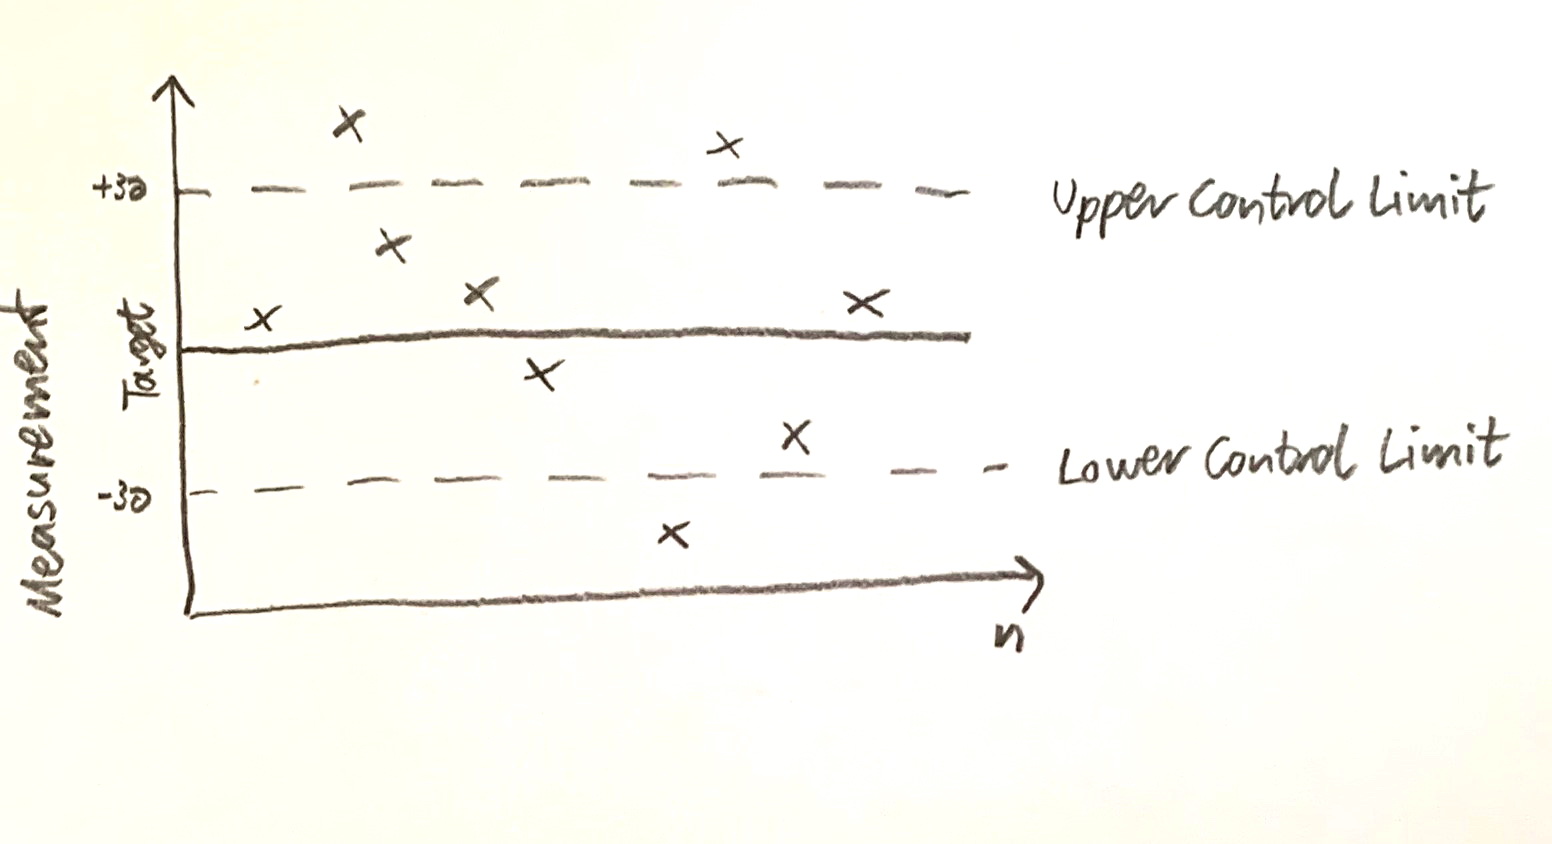 +3σ
Upper Control Limit
Measurement
Target
-3σ
Lower Control Limit
n